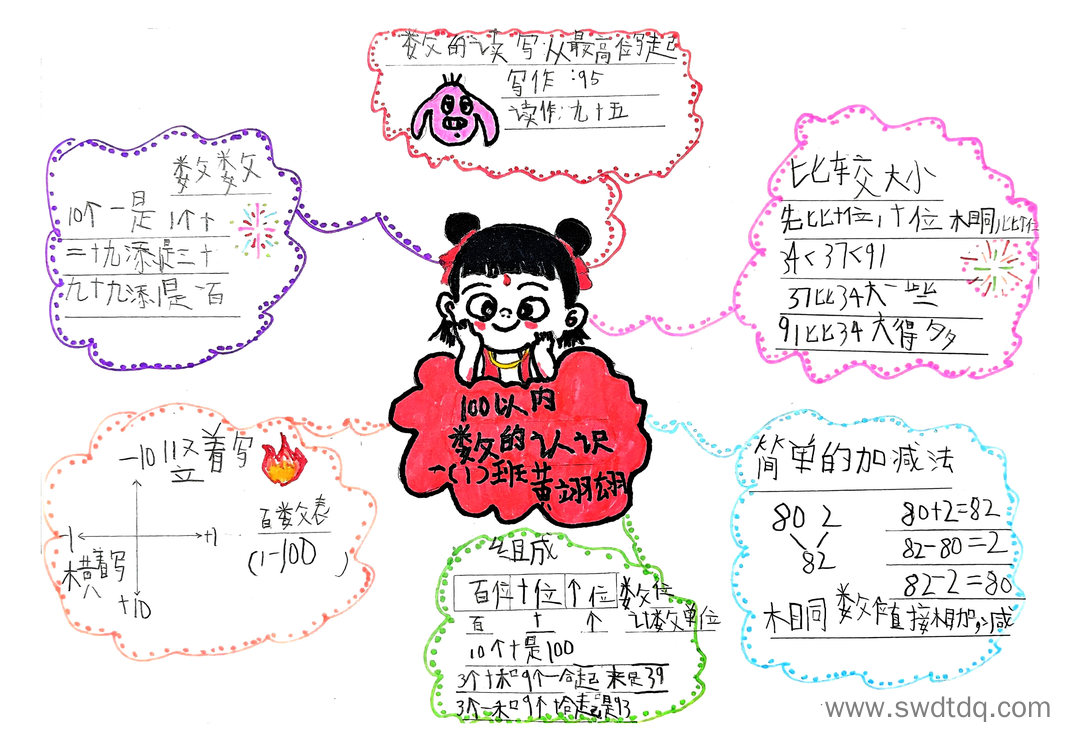 数的读写从最高位写起
写作:95
读作:九十五
数数
10个一是1个十
二十九添1是三十
九十九添1是一百
比较大小
先比十位,十位相同,比个位
34<37<91
37比34大一些
91比34大得多
100以内
数的认识
一(1)班黄翊翃
-10 竖着写
百数表
(1-100)
-1
+1
横着写
+10
组成
百位 十位 个位 数位
百 十 个 计数单位
10个十是100
3个十和9个一合起来是39
3个一和9个十合起是93
简单的加减法
80 2
82
80+2=82
82-80=2
82-2=80
相同数位直接相加减
www.swdtdq.com